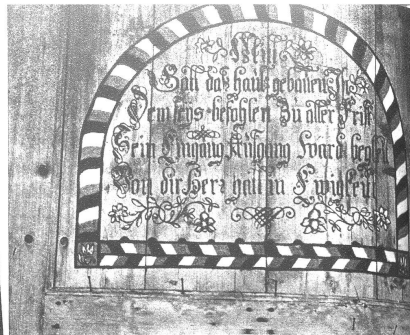 Mit
Gott das hauß gebauen Ist
Dem seys befohlen Zu aller Frist
Sein Eingang Außgang
Von dir Herr Gott in Ewigkeyt